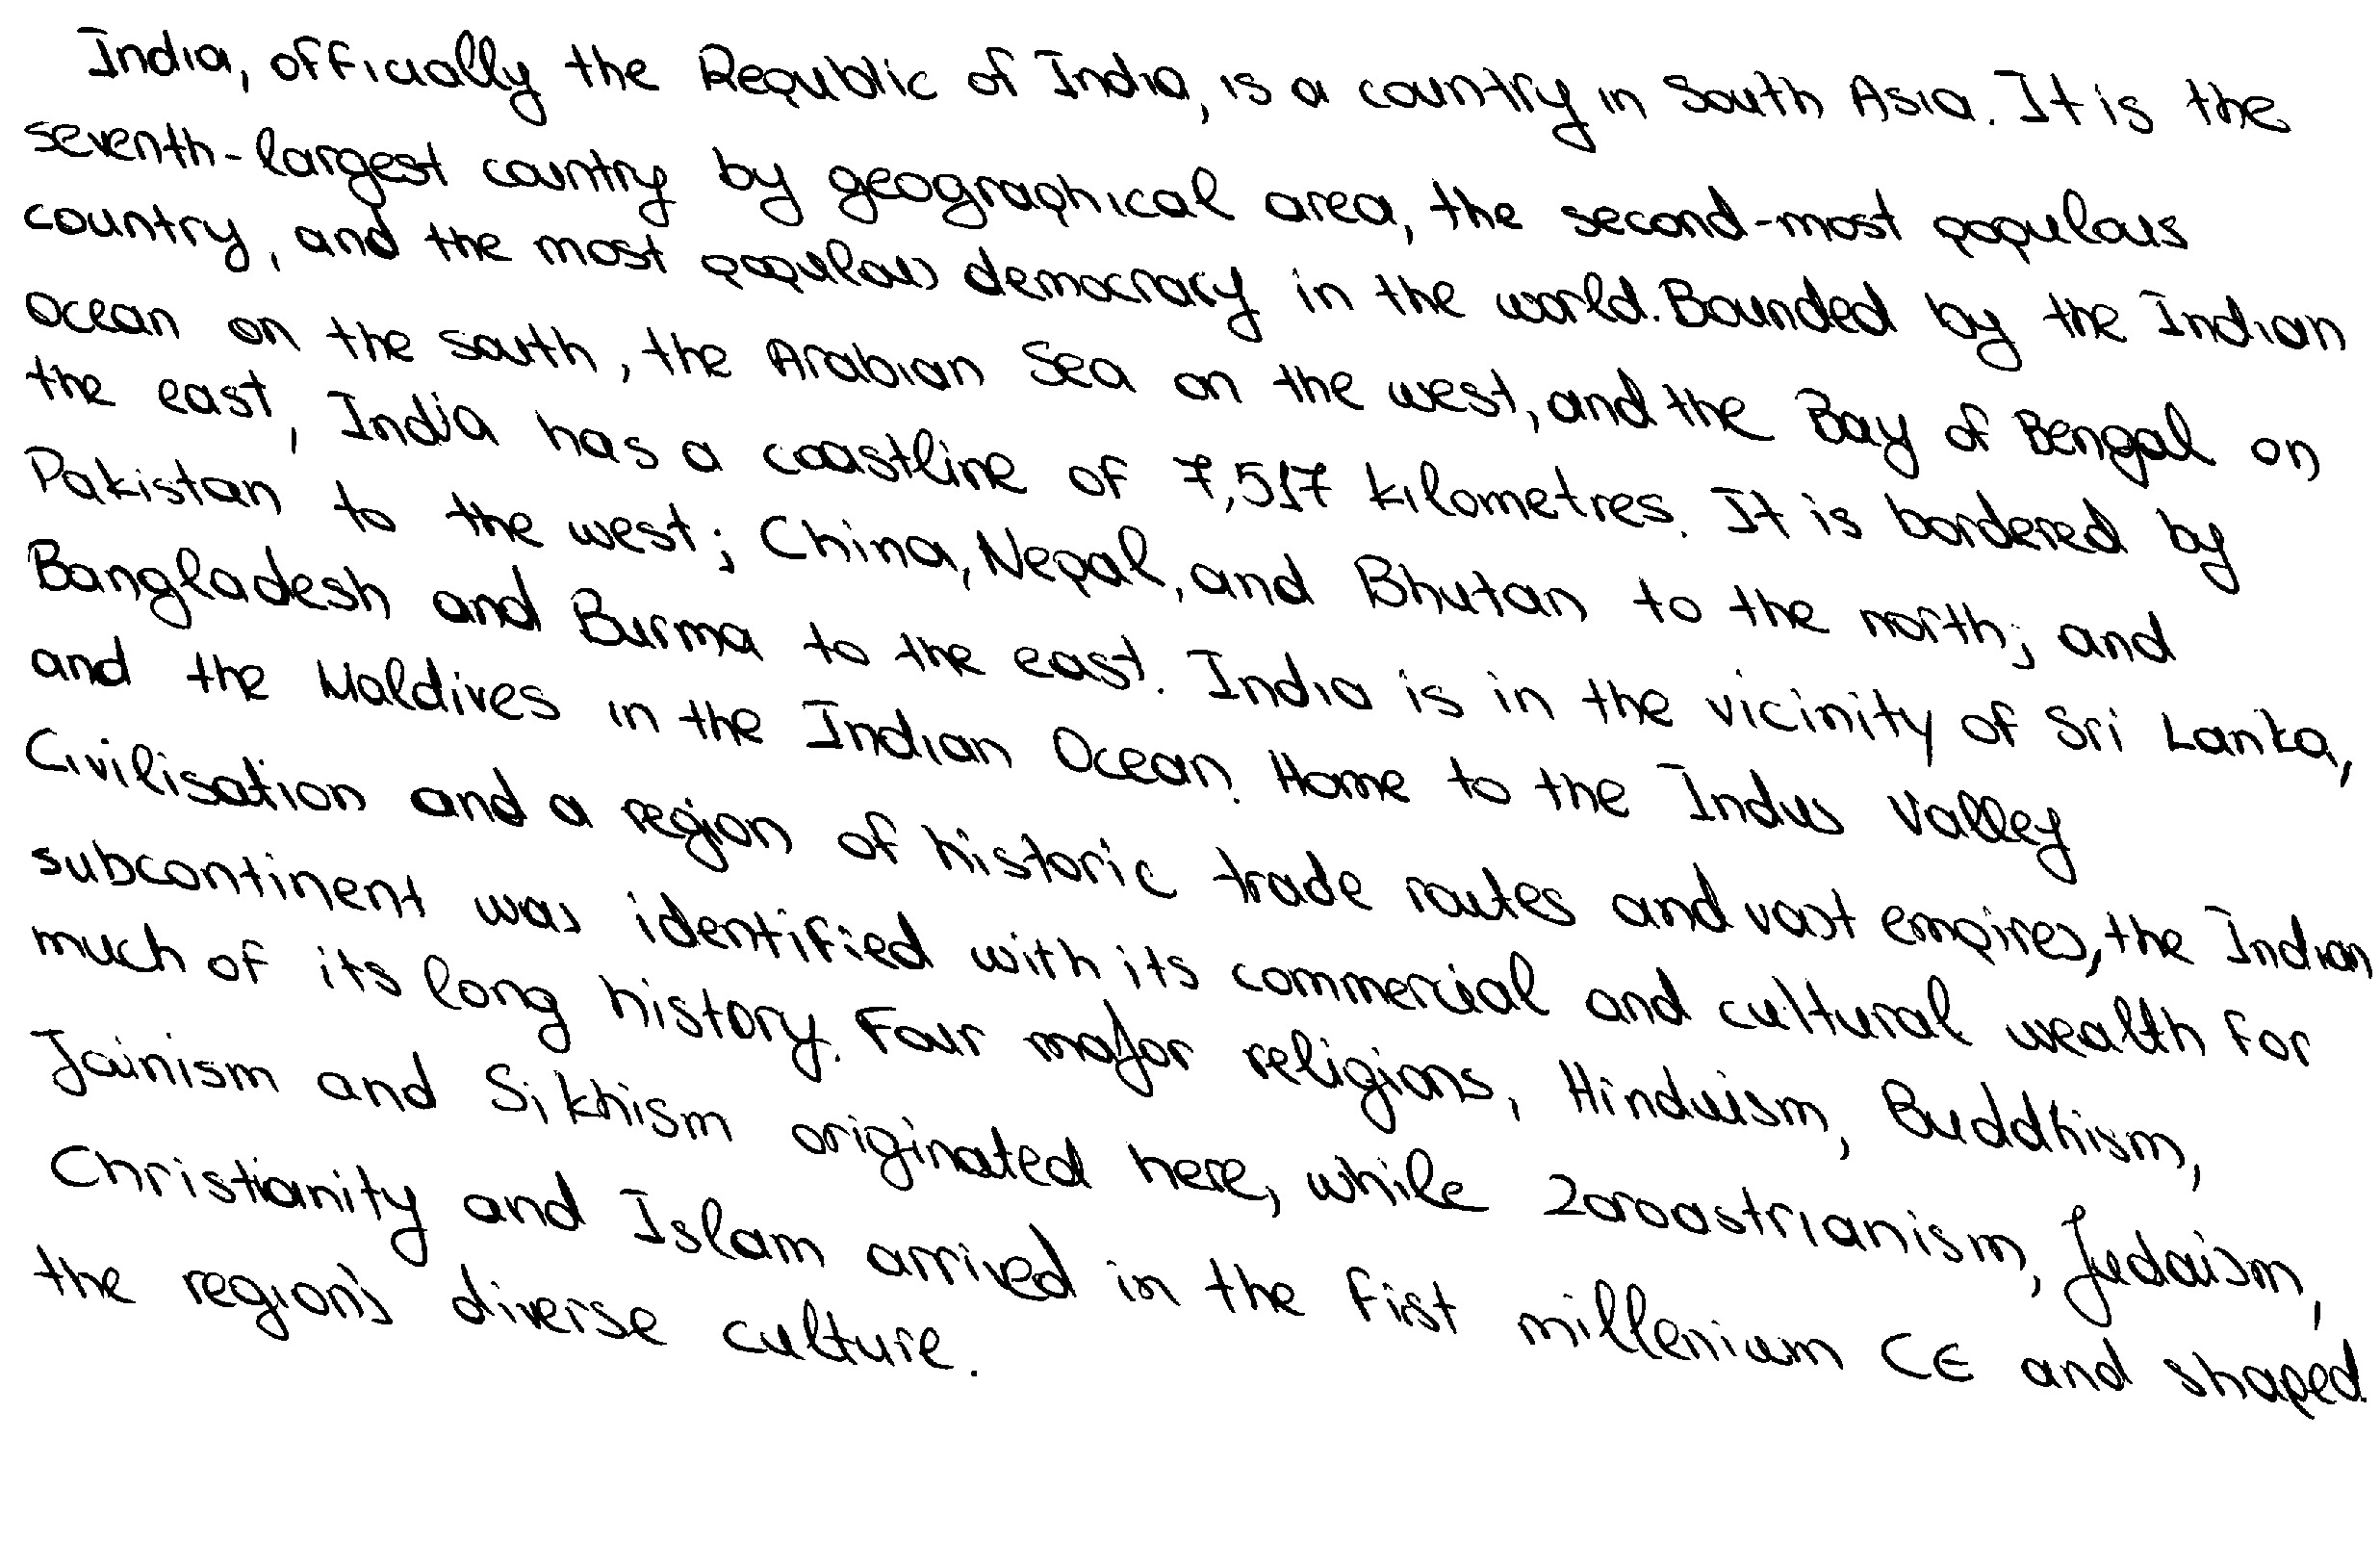 India, officially the Republic of India, is a country in South Asia. It is the
seventh-largest country by geographical area, the second-most populous
country, and the most populous democracy in the world. Bounded by the Indian
Ocean on the south, the Arabian Sea on the west, and the Bay of Bengal on
the east, India has a coastline of 7,517 kilometres. It is bordered by
Pakistan to the west; China, Nepal, and Bhutan to the north; and
Bangladesh and Burma to the east. India is in the vicinity of Sri Lanka,
and the Maldives in the Indian Ocean. Home to the Indus Valley
Civilisation and a region of historic trade routes and vast empires, the Indian
subcontinent was identified with its commercial and cultural wealth for
much of its long history. Four major religions, Hinduism, Buddhism,
Jainism and Sikhism originated here, while Zoroastrianism, Judaism,
Christianity and Islam arrived in the fist millenium CE and shaped
the region's diverse culture.